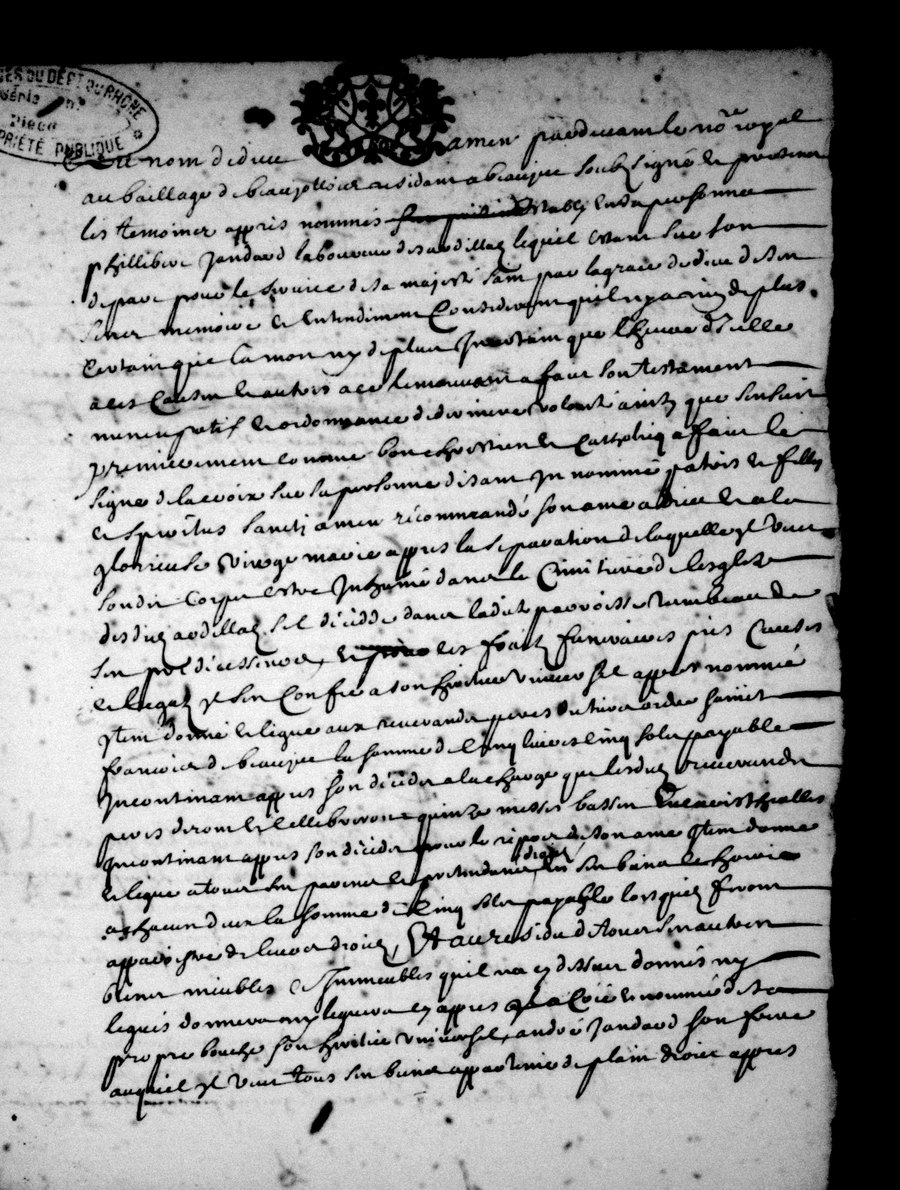 ES DU DÉPT DU RHÔNE
Série
Pièce
PRIÉTÉ PUBLIQUE
Au nom de dieu amen pardevant le no.re royal
au bailliage de beaujollois residant a beaujeu soubzsigné et presence
les temoinz appres nommés estably en sa personne
phillibert Jandard laboureur des ardillaz lequel estant sur son
depart pour le service de sa majesté sain par la grace de dieu de son
sens memoire et entendiment considerant quil ny a rien de plus
certain que la mort ny de plus Incertain que lheure dicelle
a ces causes et autres a ce le mouvant a faict son testament
nuncupatif et ordonnance de derniere volonté ainsy que sensuit
premierement comme bon chrestien et catholiq a faict le
signe de la croix sur sa personne disant In nomine patris et filly
et spiritus sancty amen recommandé son ame a dieu et a la
glorieuse vierge marie appres la separation de laquelle yl veut
sondit corps estre Inhumé dans le cimitiere de lesglize
desdiz ardillaz sil decedde dans ladicte parroisse tumbeau de
ses predicesseurs, et les fraiz funeraires pies causes
et legaz yl sen confie a son heritier universel appres nommé
Ytem donne et legue aux reverandz peres du tiers ordre sainct
francois de beaujeu la somme de cinq livres cinq solz payable
Incontinant appres son décedz a la charge que lesdiz reverandz
peres diront et cellebreront quinze messes basses
Incontinant appres son décedz pour le repos de son ame Ytem donne
et legue a tous ses parens et pretendans droictz en ses biens et hoirie
a chacun deux la somme de cinq solz payable lorsquilz feront
apparoistre de leurs droictz, Et au residu de tous ses autres
biens meubles et Immeubles quil na cy dessus donnés ny
legués donnera ny leguera cy appres a creé et nommé de sa
propre bouche son heritier universel, andré Jandard son frere
auquel yl veut tous ses biens appartenir de plain droict appres